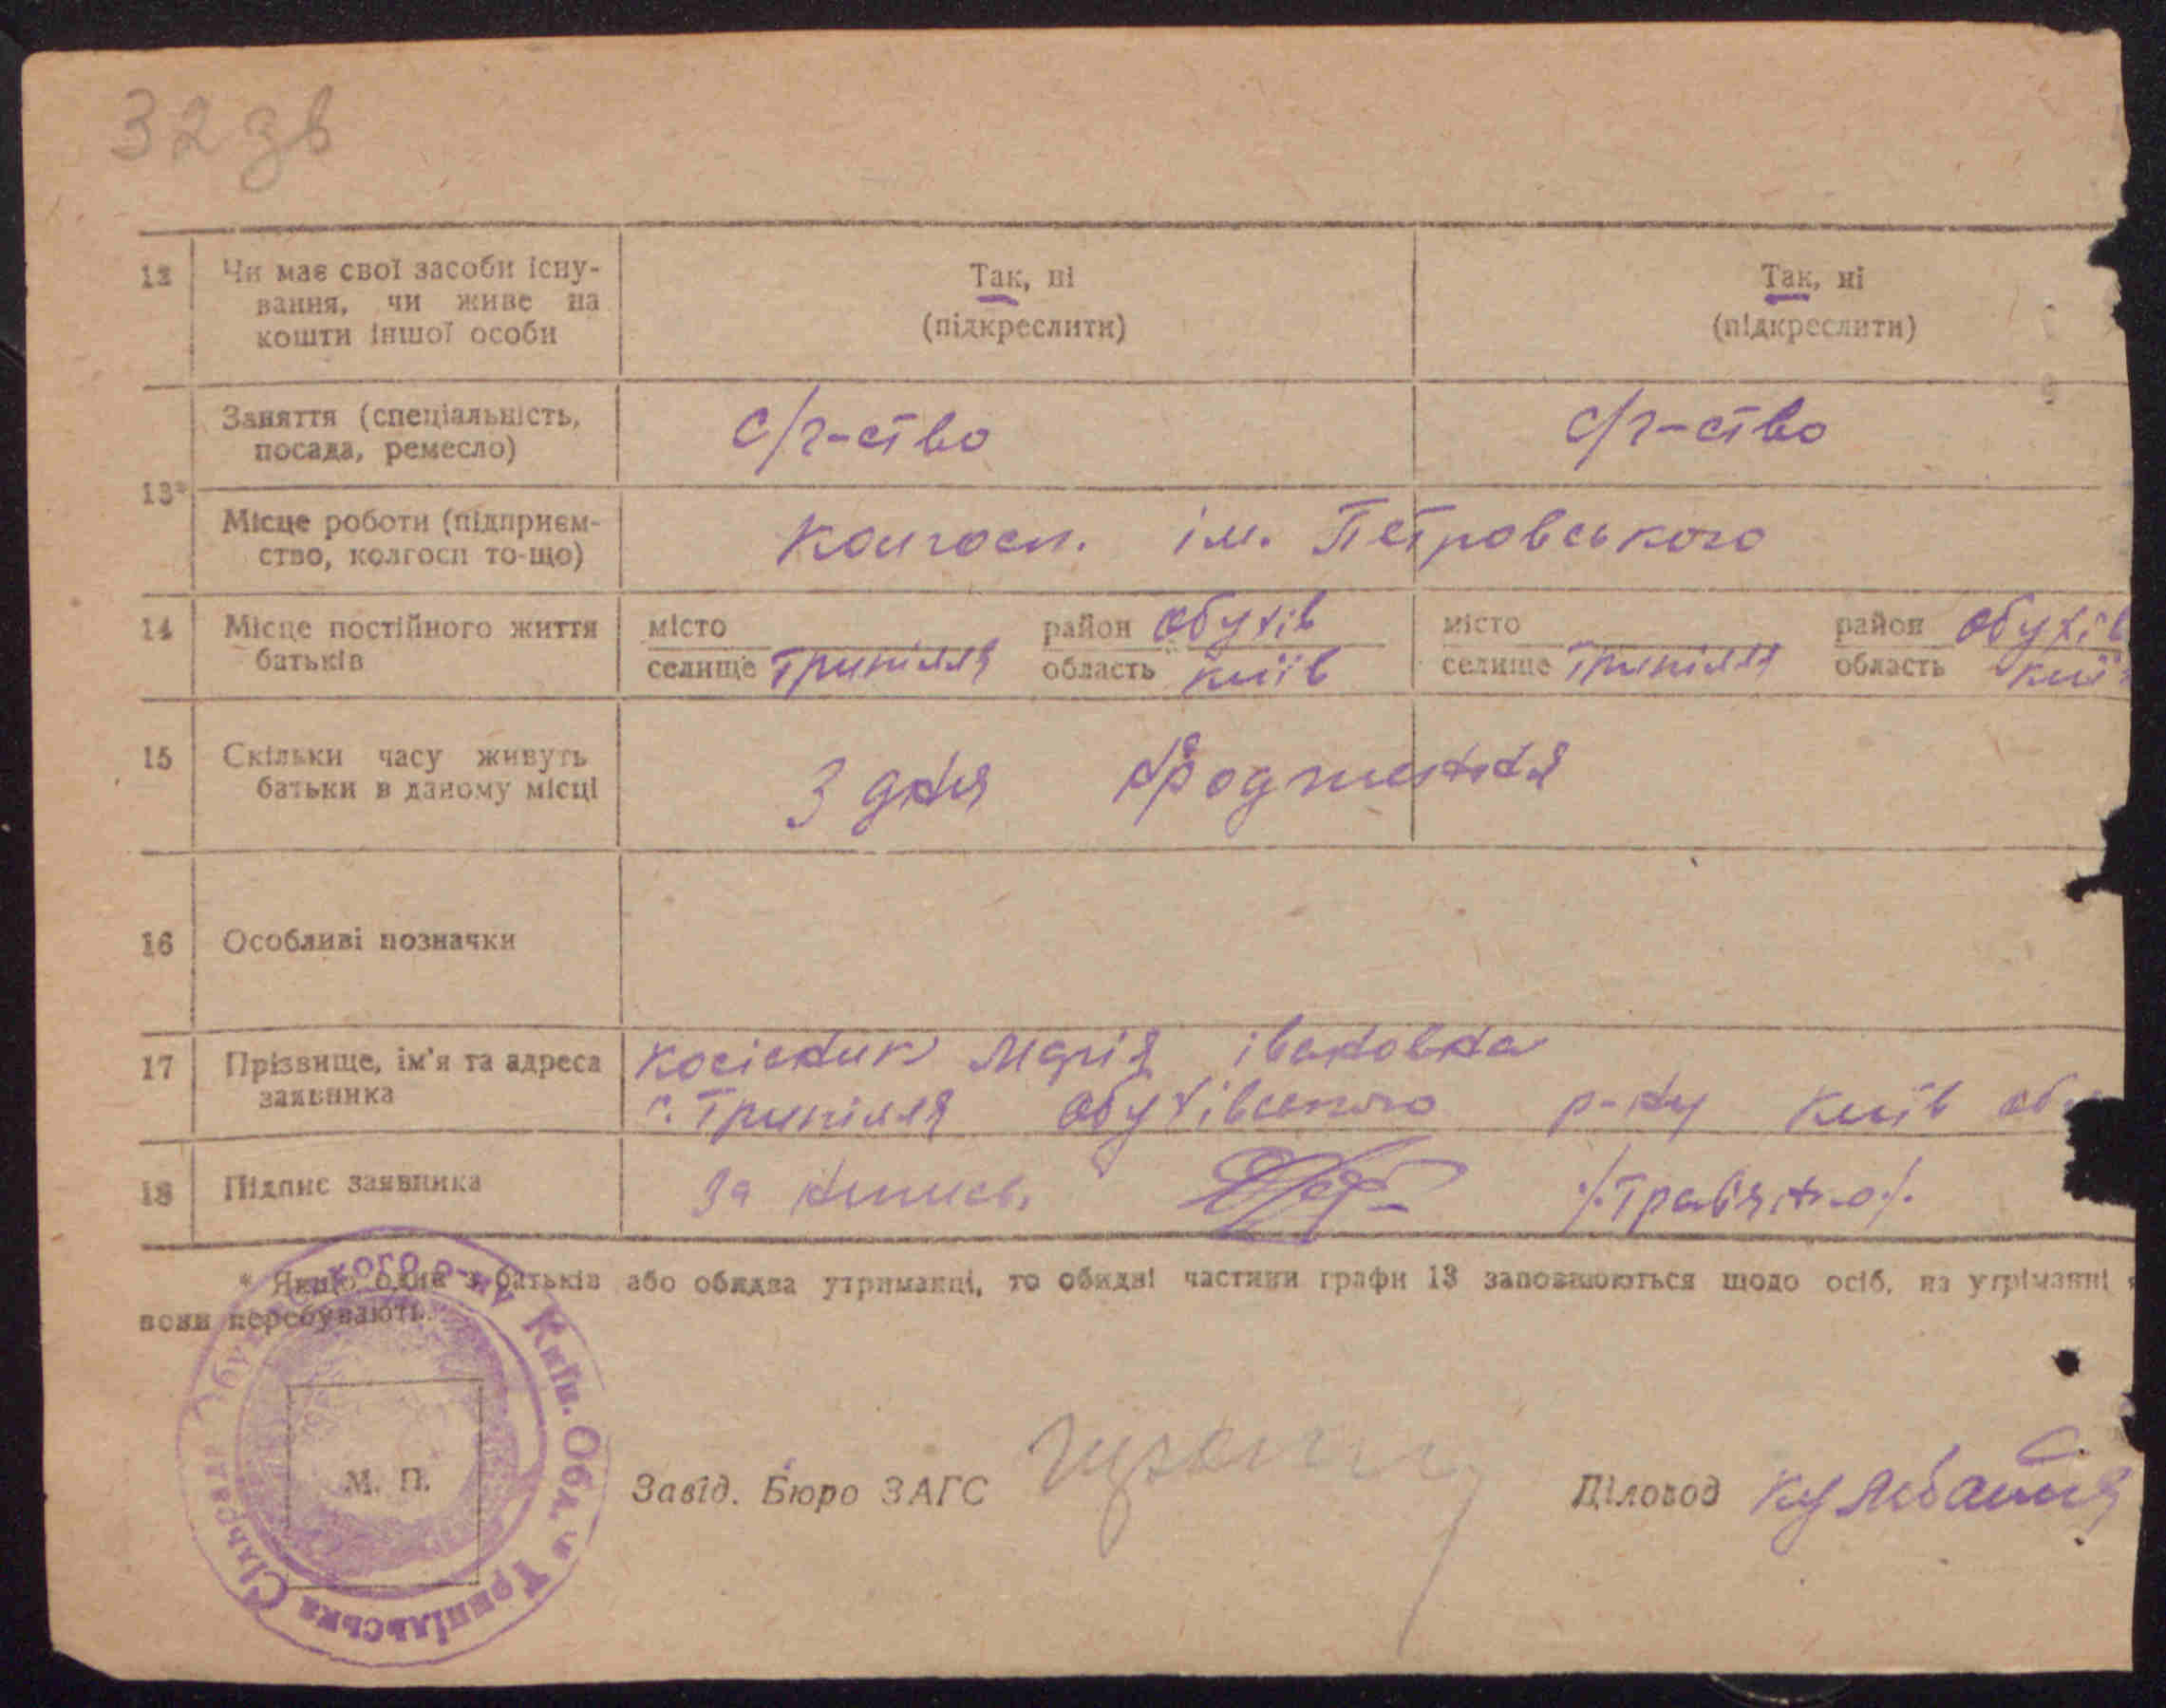 32 зв
12 Чи має свої засоби існу- Так, ні Так, ні
вання, чи живе на (підкреслити) (підкреслити)
кошти іншої особи
Заняття (спеціальність, с/г-ство с/г-ство
посада, ремесло)
13*
Місце роботи (підприєм- Колгосп. ім. Петровського
ство, колгосп то-що)
14 Місце постійного життя місто район Обухів місто район Обухів
батьків селище Трипілля область Київ селище Трипілля область Киї
15 Скільки часу живуть З дня народження
батьки в даному місці
16 Особливі позначки
17 Прізвище, ім'я та адреса Косіеник Марія івановна
заявника с. Трипілля Обухівського р-ну Київ об
18 Підпис заявника За
* Якщо один з батьків або обидва утриманці, то обидві частини графи 13 заповнюються щодо осіб, на утріманні
вони перебувають.
М. П.
Завід. Бюро ЗАГС Діловод
Трипільська Сільрада Обухівського р-ну Київ. Обл.